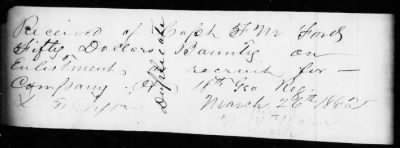 Received of Capt F M Ford
Fifty Dollars Bounty on
Enlistment, recruit for
Company 18th Geo Reg
March 2 1862
Duplicate